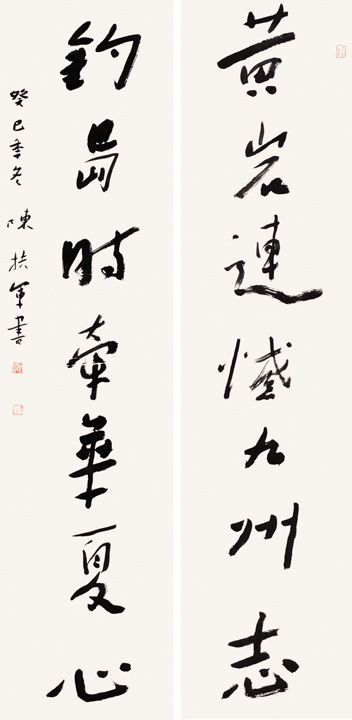 黄岩連憾九州志
釣島時牽華夏心
癸巳季冬 陳扶軍書